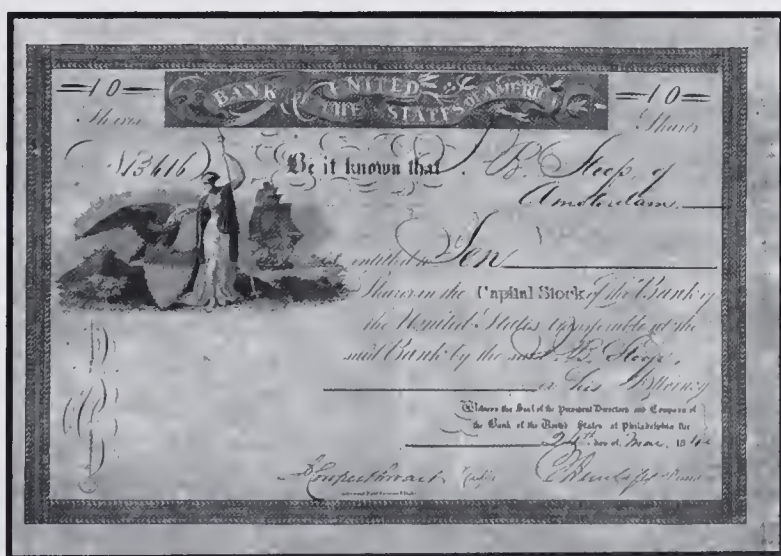 =10= BANK OF THE UNITED STATES OF AMERICA =10=
Shares Shares
(N13616) Be it known that B. Stoop, of
Amsterdam.
is entitled to Ten
Shares in the Capital Stock of the Bank of
the United States transferable at the
said Bank by the said B. Stoop,
or his Attorney
Witness the Seal of the President Directors and Company of
the Bank of the United States at Philadelphia the
24th day of Mar. 184
Cash